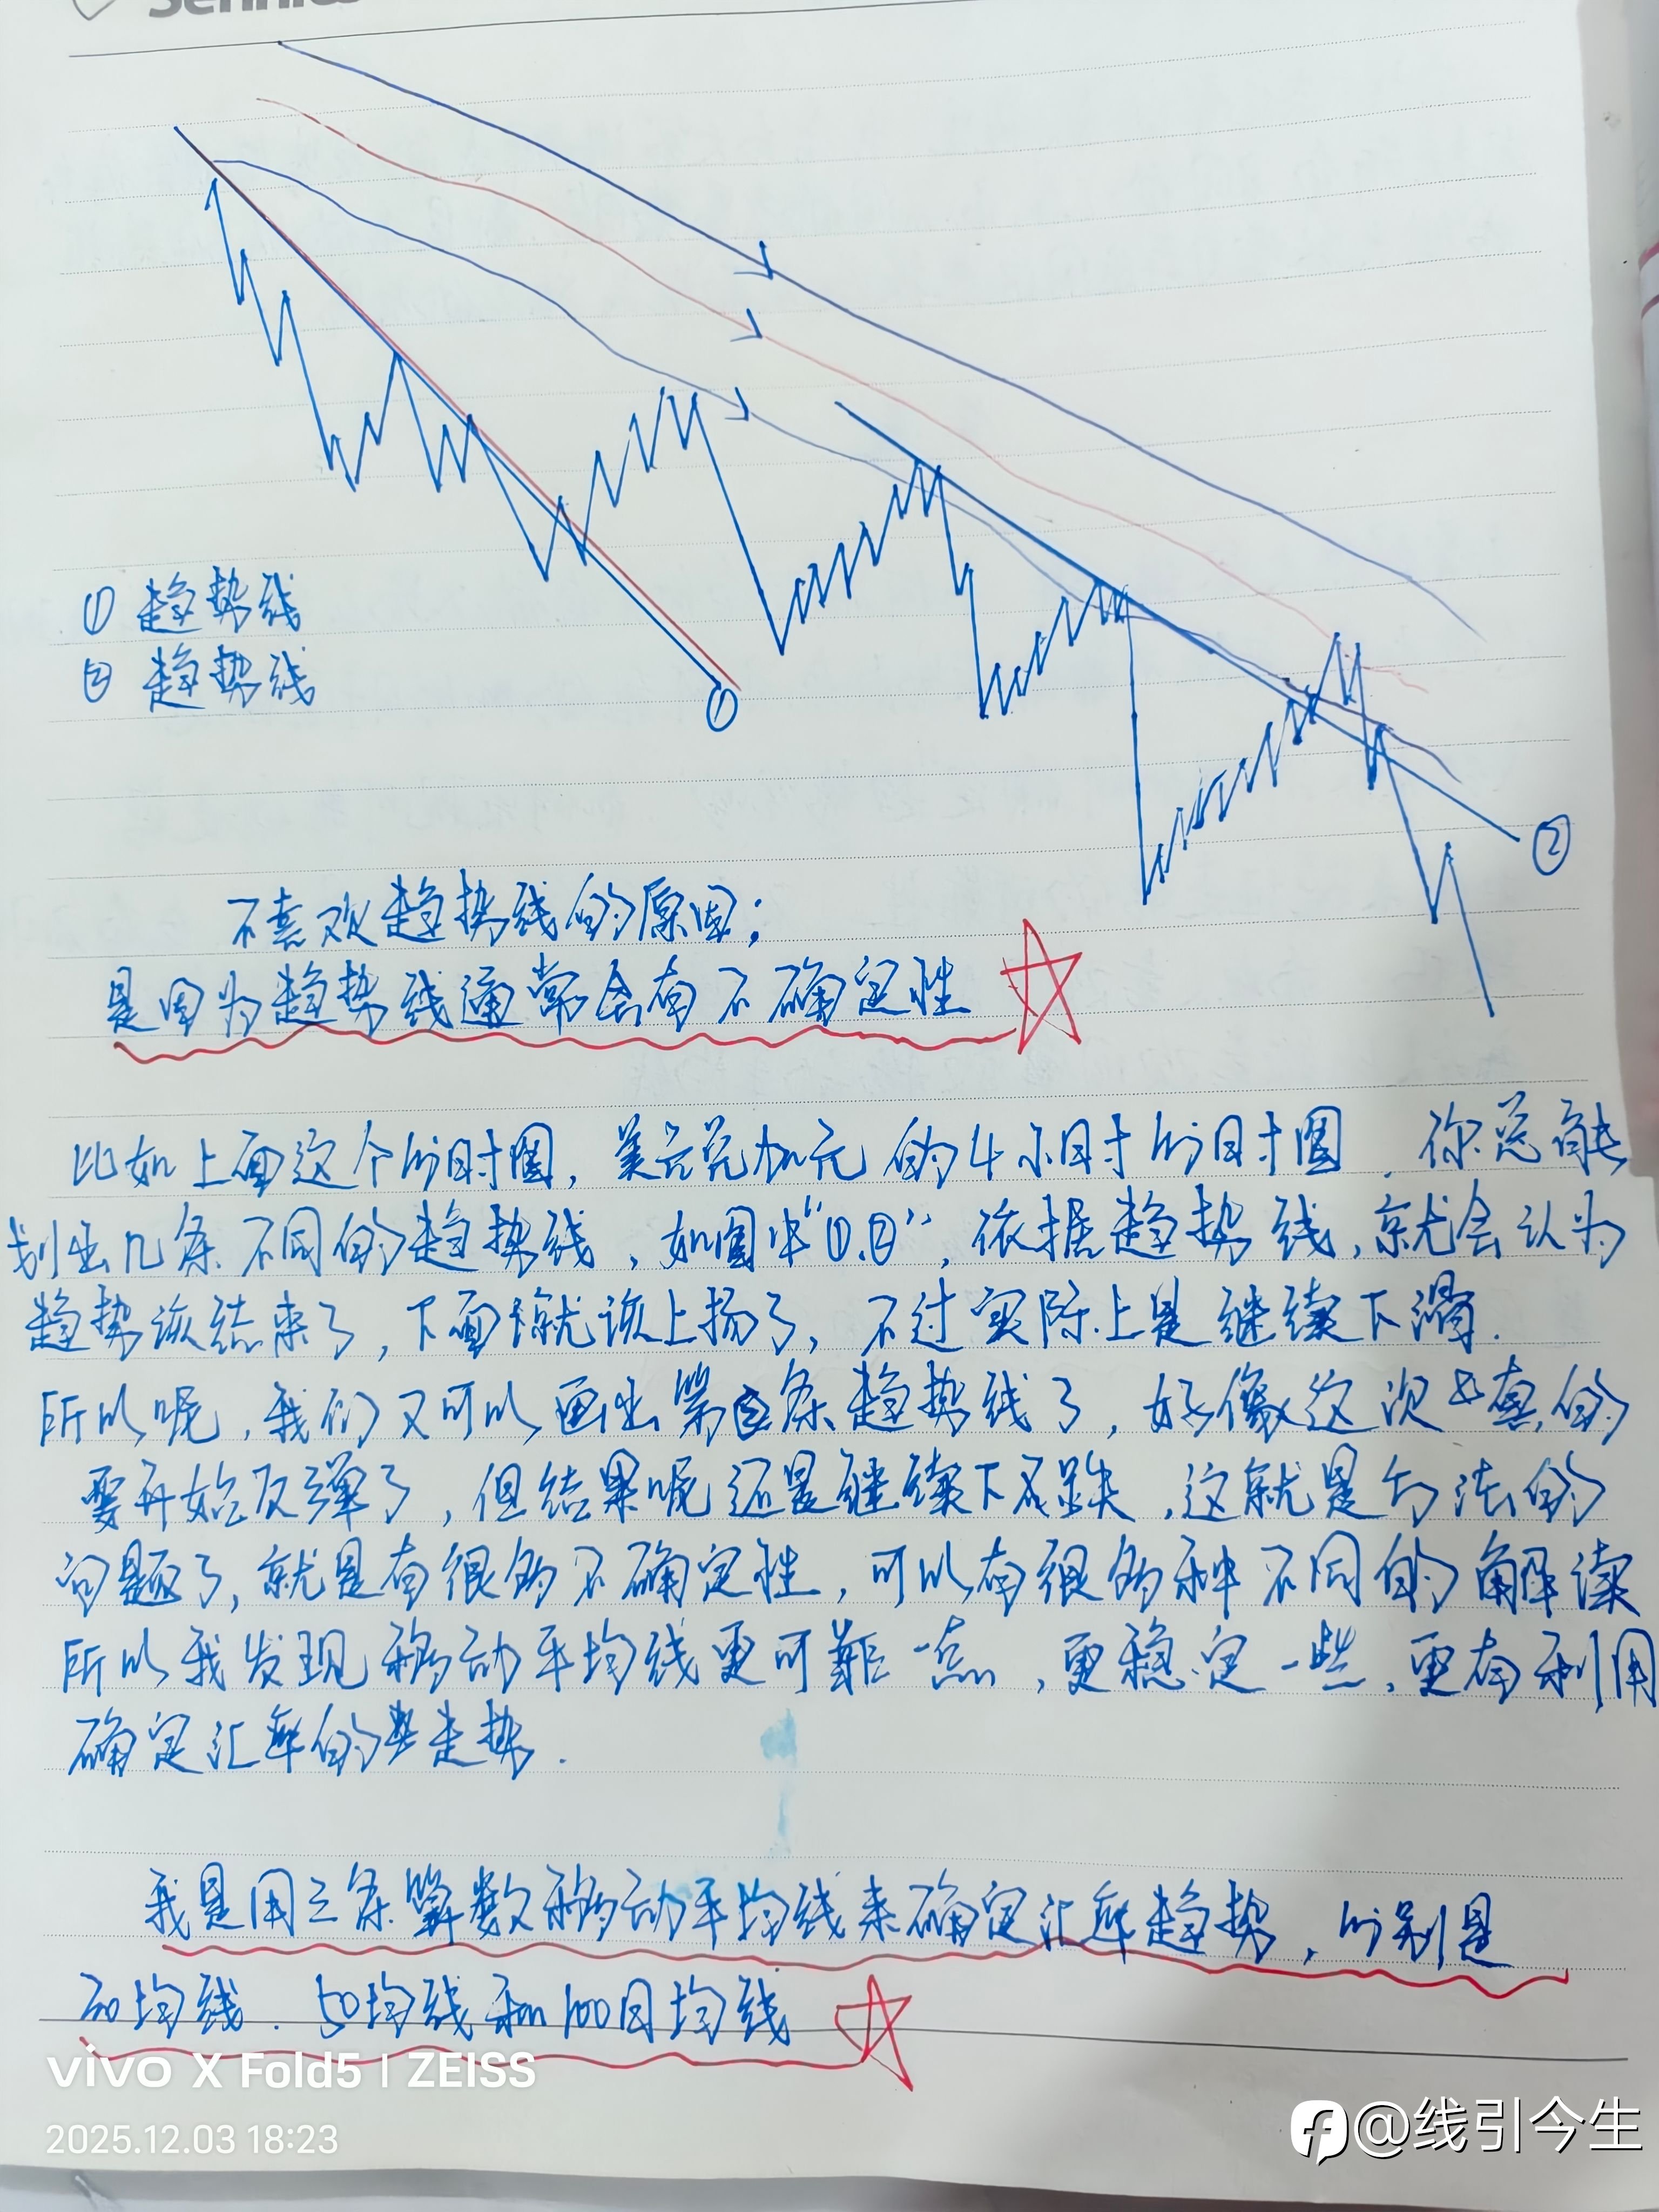 ① 趋势线
② 趋势线
①
②
不喜欢趋势线的原因;
是因为趋势线通常会有不确定性
比如上面这个分时图,美元兑加元的4小时分时图,你总能
划出几条不同的趋势线,如图中"①.②",依据趋势线,就会认为
趋势该结束了,下面就该上扬了,不过实际上是继续下滑.
所以呢,我们又可以画出第②条趋势线了,好像这次是真的
要开始反弹了,但结果呢还是继续下跌,这就是方法的
问题了,就是有很多不确定性,可以有很多种不同的解读
所以我发现移动平均线更可靠一点,更稳定一些,更有利用
确定汇率的走势.
我是用三条算数移动平均线来确定汇率趋势,分别是
20均线.50均线和100日均线
vivo X Fold5 | ZEISS
2025.12.03 18:23
@线引今生